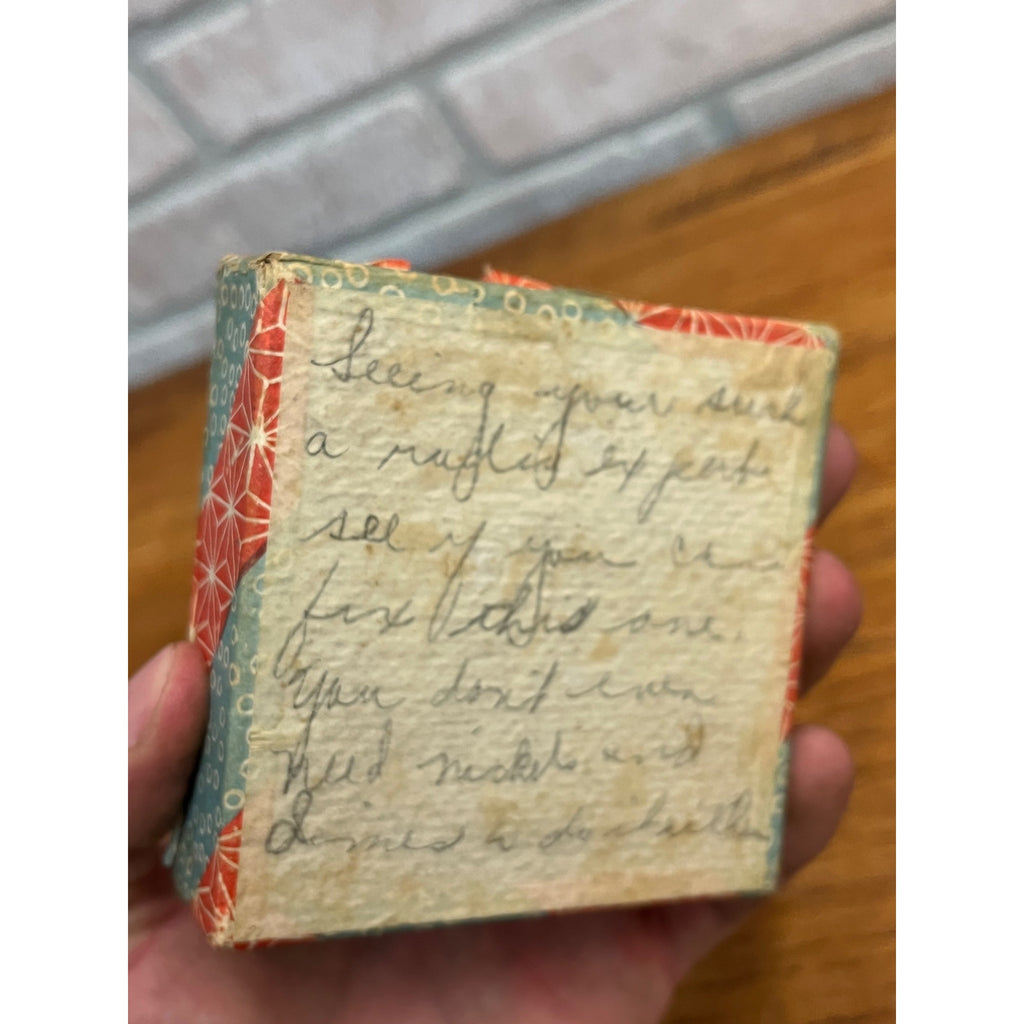 Seeing your such
a radio expert
see if you can
fix this one.
You don't even
need nickels and
dimes to do it with